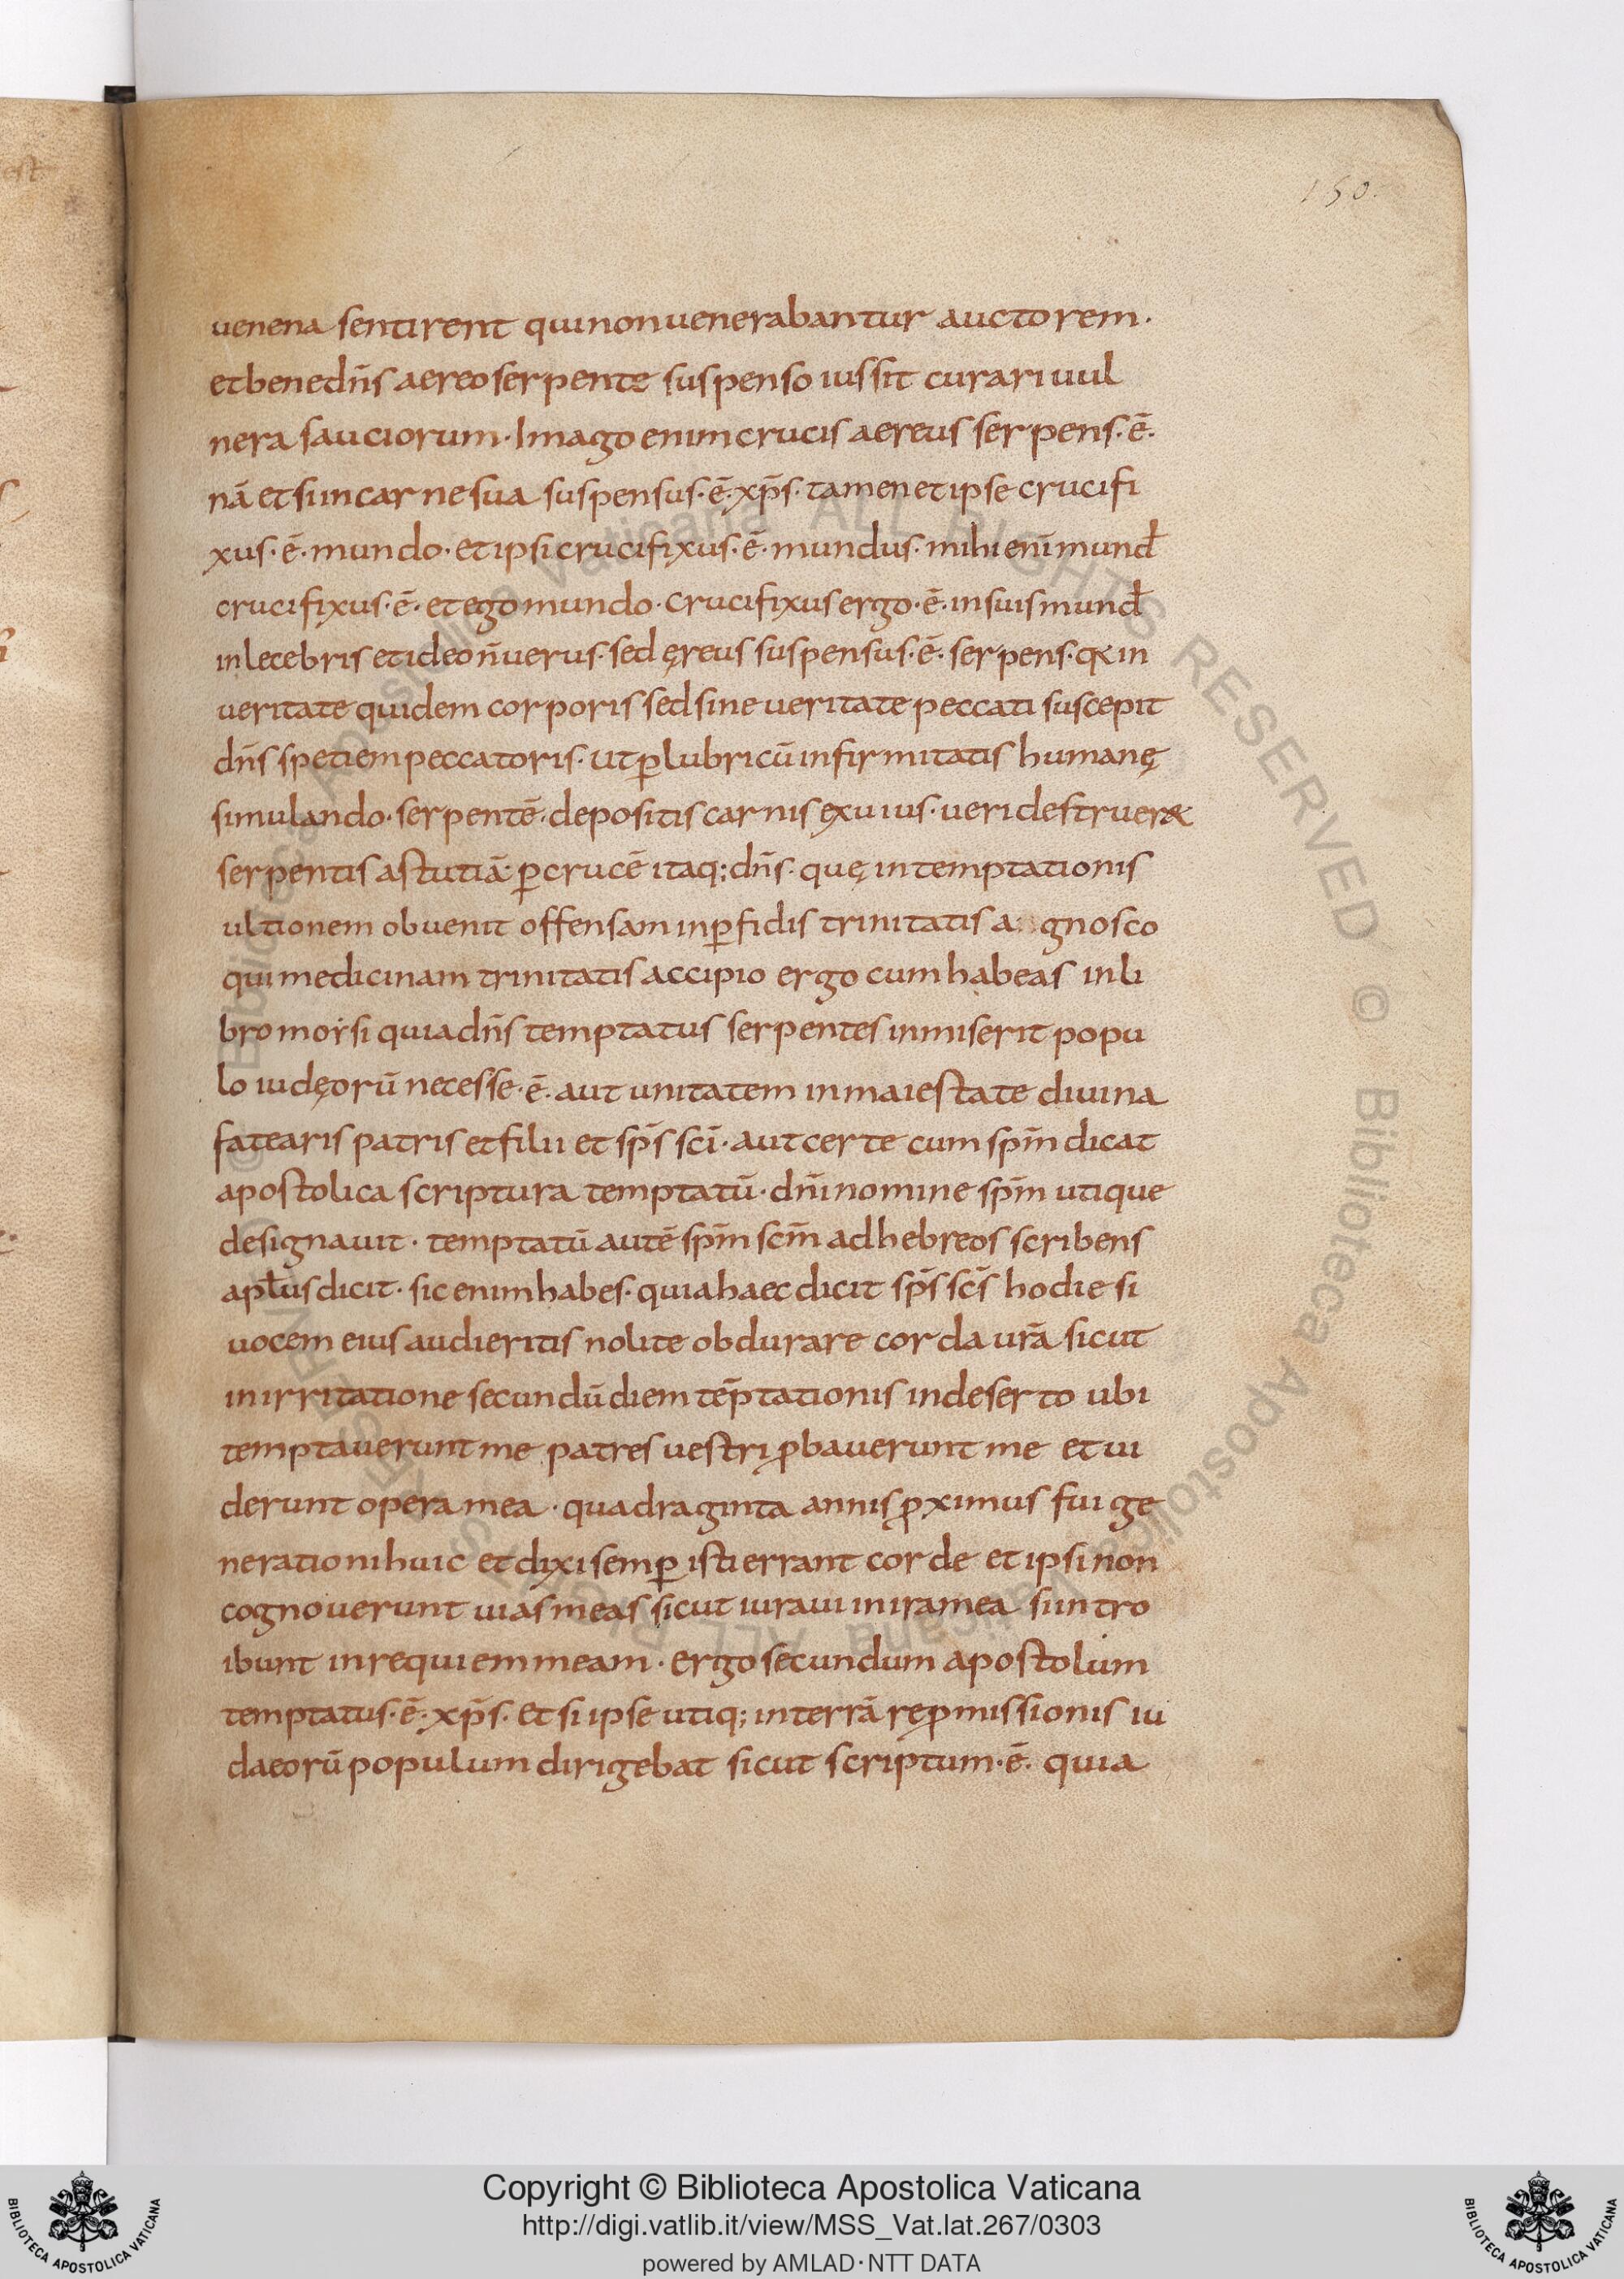 150.
uenena sentirent qui non uenerabantur auctorem·
et bene dñs aereo serpente suspenso iussit curari uul
nera sauciorum· Imago enim crucis aereus serpens·ē·
nā et si in carne sua suspensus·ē·xp̄s· tamen et ipse crucifi
xus·ē· mundo· et ipsi crucifixus·ē· mundus· mihi enī mund̄
crucifixus·ē· et ego mundo· crucifixus ergo·ē· in suis mund̄
inlecebris et ideo ñ uerus· sed ęreus suspensus·ē· serpens· q& in
ueritate quidem corporis sed sine ueritate peccati suscepit
dñs spetiem peccatoris· ut ꝑ lubricū infirmitatis humanę
simulando· serpentē· depositis carnis exuuiis· ueri destruer&
serpentis astutiā· ꝑ crucē itaq; dñs· quę in temptationis
ultionem obuenit offensam in ꝑfidis trinitatis a gnosco
qui medicinam trinitatis accipio ergo cum habeas in li
bro morsi quia dñs temptatus serpentes inmiserit popu
lo iudęorū necesse·ē· aut unitatem in maiestate diuina
fatearis patris et filii et sp̄s scī· aut certe cum sp̄m dicat
apostolica scriptura temptatū· dñi nomine sp̄m utique
designauit· temptatū autē sp̄m sc̄m ad hebreos scribens
apłus dicit· sic enim habes· quia haec dicit sp̄s sc̄s hodie si
uocem eius audieritis nolite obdurare corda ur̄a sicut
in irritatione secundū diem tēptationis in deserto ubi
temptauerunt me patres uestri ꝓbauerunt me et ui
derunt opera mea· quadraginta annis ꝓximus fui ge
nerationi huic et dixi semꝑ isti errant corde et ipsi non
cognouerunt uias meas sicut iuraui in ira mea si intro
ibunt in requiem meam· ergo secundum apostolum
temptatus·ē· xp̄s· Et si ipse utiq; in terrā reꝓmissionis iu
daeorū populum dirigebat sicut scriptum·ē· quia
Copyright © Biblioteca Apostolica Vaticana
http://digi.vatlib.it/view/MSS_Vat.lat.267/0303
powered by AMLAD·NTT DATA
BIBLIOTECA APOSTOLICA VATICANA
BIBLIOTECA APOSTOLICA VATICANA
© Biblioteca Apostolica Vaticana ALL RIGHTS RESERVED
© Biblioteca Apostolica Vaticana ALL RIGHTS RESERVED